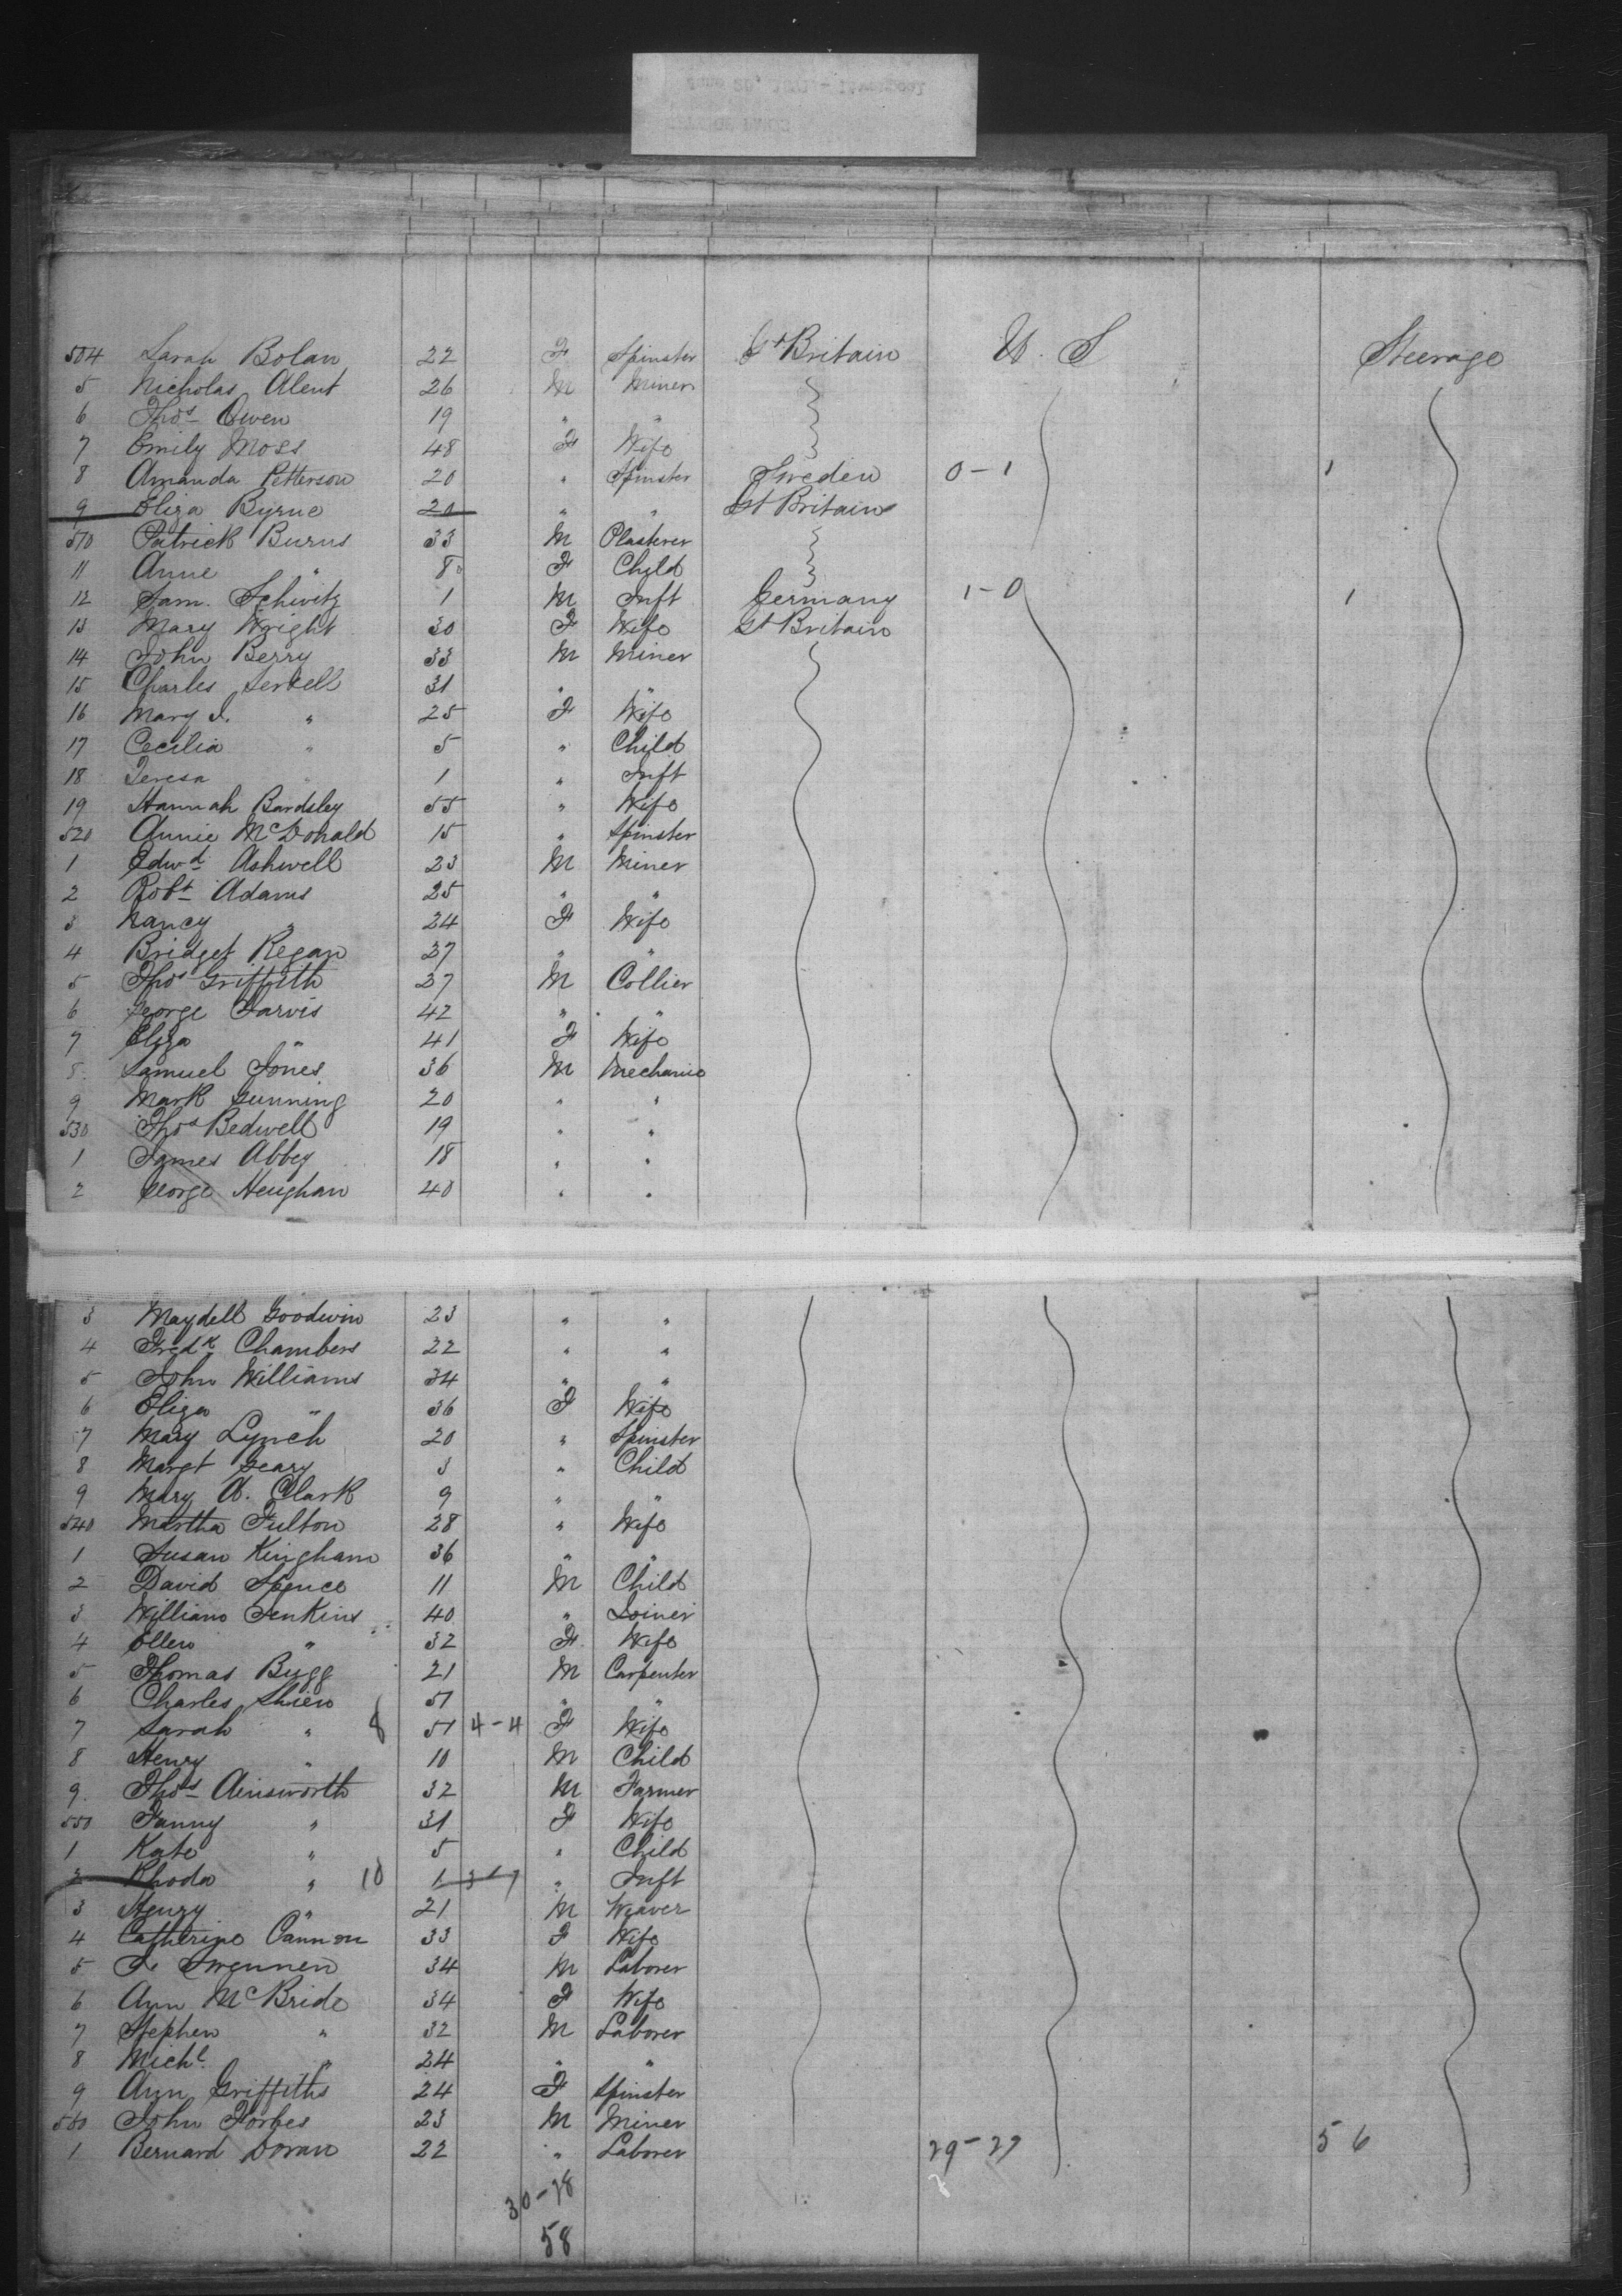 504 Sarah Bolan 22 F Spinster Gt Britain U. S Steerage
5 Nicholas Alent 26 M Miner
6 Thos Owen 19 " "
7 Emily Moss 48 F Wife
8 Amanda Petterson 20 " Spinster Sweden 0-1 1
9 Eliza Byrne 20 " " Gt Britain
510 Patrick Burns 33 M Plasterer
11 Anne " 8 F Child
12 Sam. Schivitz 1 M Inft Germany 1-0 1
13 Mary Wright 30 F Wife Gt Britain
14 John Berry 33 M Miner
15 Charles 31 " "
16 Mary J. " 25 F Wife
17 Cecilia " 5 " Child
18 Teresa " 1 " Inft
19 Hannah Bardsley 55 " Wife
520 Annie McDonald 15 " Spinster
1 Edwd Ashwell 23 M Miner
2 Robt Adams 25 " "
3 Nancy " 24 F Wife
4 Bridget Regan 37 " "
5 Thos Griffith 27 M Collier
6 George Jarvis 42 " "
7 Eliza " 41 F Wife
8 Samuel Jones 36 M Mechanic
9 Mark Gunning 20 " "
530 Thos Bedwell 19 " "
1 James Abbey 18 " "
2 George Heughan 40 " "
3 Maydell Goodwin 23 " "
4 Fredk Chambers 22 " "
5 John Williams 34 " "
6 Eliza " 36 F Wife
7 Mary Lynch 20 " Spinster
8 Margt Geary 3 " Child
9 Mary A. Clark 9 " "
540 Martha Fulton 28 " Wife
1 Susan Kingham 36 " "
2 David Spence 11 M Child
3 William Jenkins 40 " Joiner
4 Ellen " 32 F Wife
5 Thomas Bugg 21 M Carpenter
6 Charles Shien 51 " "
7 Sarah " 8 51 4-4 F Wife
8 Henry " 10 M Child
9 Thos Ainsworth 32 M Farmer
550 Fanny " 31 F Wife
1 Kate " 5 " Child
2 Rhoda " 10 1 " Inft
3 Henry " 21 M Weaver
4 Catherine Cannon 33 F Wife
5 34 M Laborer
6 Ann McBride 34 F Wife
7 Stephen " 32 M Laborer
8 Michl " 24 " "
9 Ann Griffiths 24 F Spinster
560 John Forbes 23 M Miner
1 Bernard Doran 22 " Laborer 29-27 56
30-28
58